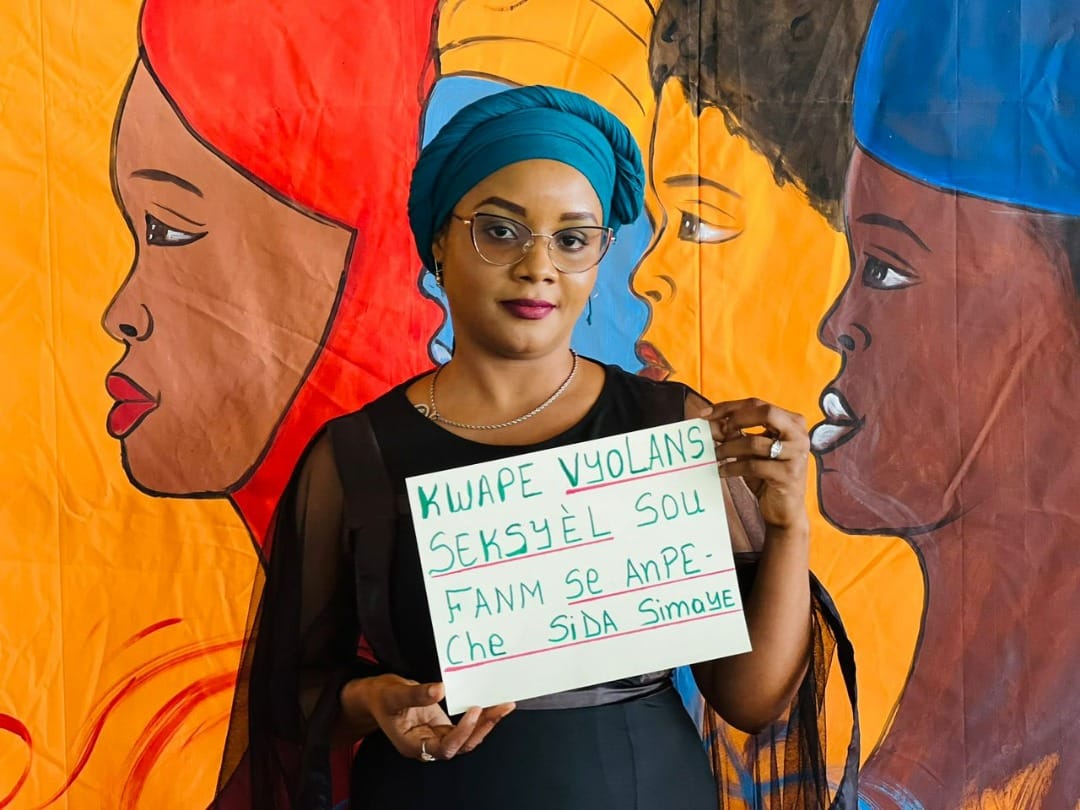 KWAPE VYOLANS
SEKSYÈL SOU
FANM SE ANPE-
Che SiDA SimaYE